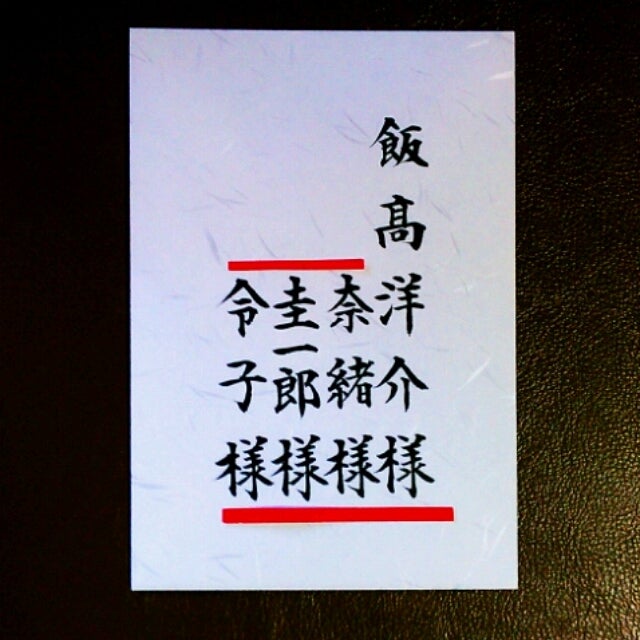 飯髙洋介様
奈緒様
圭一郎様
令子様